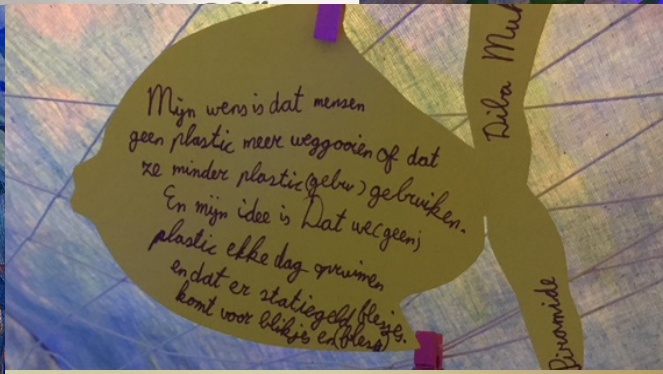 Mijn wens is dat mensen
geen plastic meer weggooien of dat
ze minder plastic (gebru) gebruiken.
En mijn idee is Dat we (geen)
plastic elke dag opruimen
en dat er statiegeld
komt voor blikjes en flesje.
(flesje)
Diba Muk
Piramide